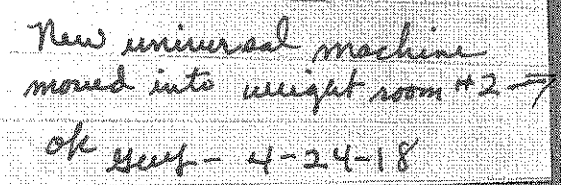 New universal machine
moved into weight room #2 →
ok - 4-24-18